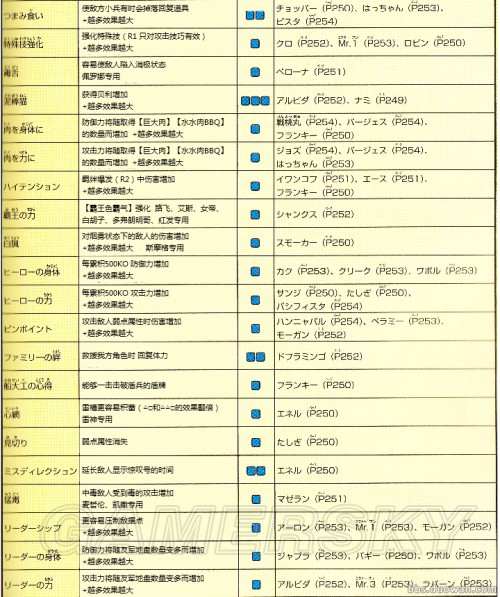 つまみ食い
使敌方小兵有时会掉落回复道具
+越多效果越大
チョッパー（P250）、はっちゃん（P253）、
ビスタ（P254）
特殊技強化
强化特殊技（R1 只对攻击技巧有效）
+越多效果越大
クロ（P252）、Mr.1（P253）、ロビン（P250）
毒舌
容易使敌人陷入消极状态
佩罗娜专用
ペローナ（P251）
泥棒猫
获得贝利增加
+越多效果越大
アルビダ（P252）、ナミ（P249）
肉を身体に
防御力将随取得【巨大肉】【水水肉BBQ】
的数量而增加 +越多效果越大
戦桃丸（P254）、バージェス（P254）、
フランキー（P250）
肉を力に
攻击力将随取得【巨大肉】【水水肉BBQ】
的数量而增加 +越多效果越大
ジョズ（P254）、バージェス（P254）、
はっちゃん（P253）
ハイテンション
羁绊爆发（R2）中伤害增加
+越多效果越大
イワンコフ（P251）、エース（P251）、
フランキー（P250）
覇王の力
【霸王色霸气】强化 路飞、艾斯、女帝、
白胡子、多弗朗明哥、红发专用
シャンクス（P252）
白猟
对烟袭状态下的敌人的伤害增加
+越多效果越大 斯摩格专用
スモーカー（P250）
ヒーローの身体
每累积500KO 防御力增加
+越多效果越大
カク（P253）、クリーク（P253）、ワポル（P253）
ヒーローの力
每累积500KO 攻击力增加
+越多效果越大
サンジ（P250）、たしぎ（P250）、
パシフィスタ（P254）
ピンポイント
攻击敌人弱点属性时伤害增加
+越多效果越大
ハンニャバル（P254）、ベラミー（P253）、
モーガン（P252）
ファミリーの絆
救援我方角色时 回复体力
ドフラミンゴ（P252）
船大工の心得
能够一击击破盾兵的盾牌
フランキー（P250）
心綱
雷槽更容易积蓄（▵□和▵▵□的效果翻倍）
雷神专用
エネル（P250）
見切り
弱点属性消失
たしぎ（P250）
ミスディレクション
延长敌人显示惊叹号的时间
エネル（P250）
猛毒
中毒敌人受到毒的攻击增加
麦哲伦、凯撒专用
マゼラン（P251）
リーダーシップ
更容易压制敌据点
+越多效果越大
アーロン（P253）、Mr.1（P253）、モーガン（P252）
リーダーの身体
防御力将随友军地盘数量变多而增加
+越多效果越大
ジャブラ（P253）、バギー（P250）、ワポル（P253）
リーダーの力
攻击力将随友军地盘数量变多而增加
+越多效果越大
アルビダ（P252）、Mr.3（P253）、ラバーン（P253）
GAMERSKY
bbs.duowan.com